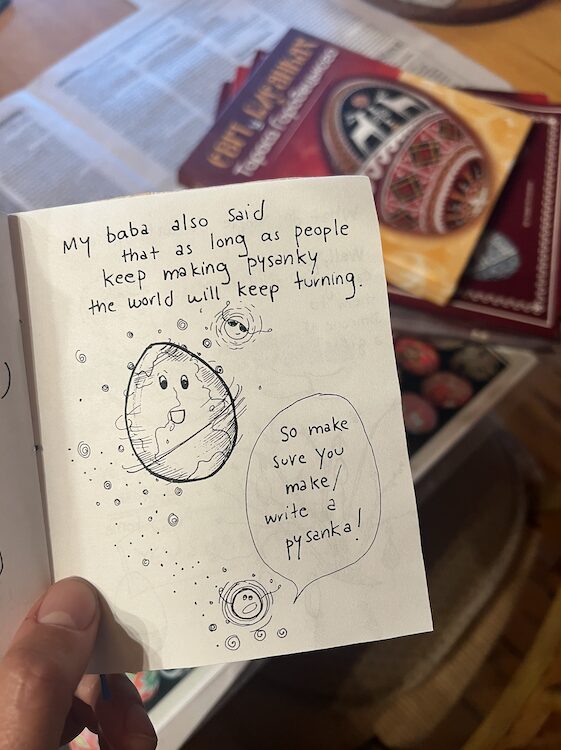 My baba also said
that as long as people
keep making pysanky
the world will keep turning.
So make
sure you
make/
write a
pysanka!
Тараса Городецького